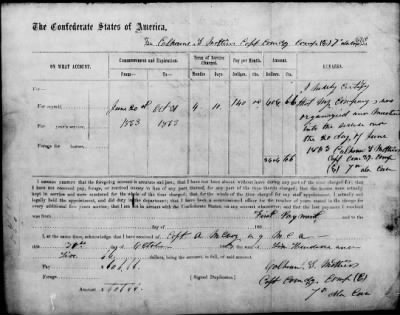 The Confederate States of America,
To Calhoun L Mathis Capt Comdg Comp (E) 7" Ala Cav
ON WHAT ACCOUNT.
Commencement and Expiration.
Term of Service Charged.
Pay per Month.
Amount.
REMARKS.
From— To—
Months Days
Dols. Cts.
Dols. Cts.
For—
For myself June 20th Oct 31 4 10 140 00 606 66
1863 1863
For years' service,
Forage for horses,
606 66
I hereby Certify
that my Company was
organized and Mustered
into the service on
the 20 day of June
1863 Calhoun L Mathis
Capt Com dg. Comp
(E) 7" Ala Cav
I HEREBY CERTIFY that the foregoing account is accurate and just; that I have not been absent without leave during any part of the time charged for; that I
have not received pay, forage, or received money in lieu of any part thereof, for any part of the time therein charged; that the horses were actually
kept in service and were mustered for the whole of the time charged; that for the whole of the time charged for my staff appointment, I actually and
legally held the appointment, and did duty in the department; that I have been a commissioned officer for the number of years stated in the charge for
every additional five years service; that I am not in arrears with the Confederate States, on any account whatsoever; and that the last payment I received
was from First Payment
day of 186
I, at the same time, acknowledge that I have received of Capt A M
this day of 186 Six Hundred and
Six 66 dollars, being the amount, in full, of said account.
Pay
Forage
Amount
[Signed Duplicates.]
Calhoun L Mathis
Capt Comdg. Comp (E)
7" Ala Cav